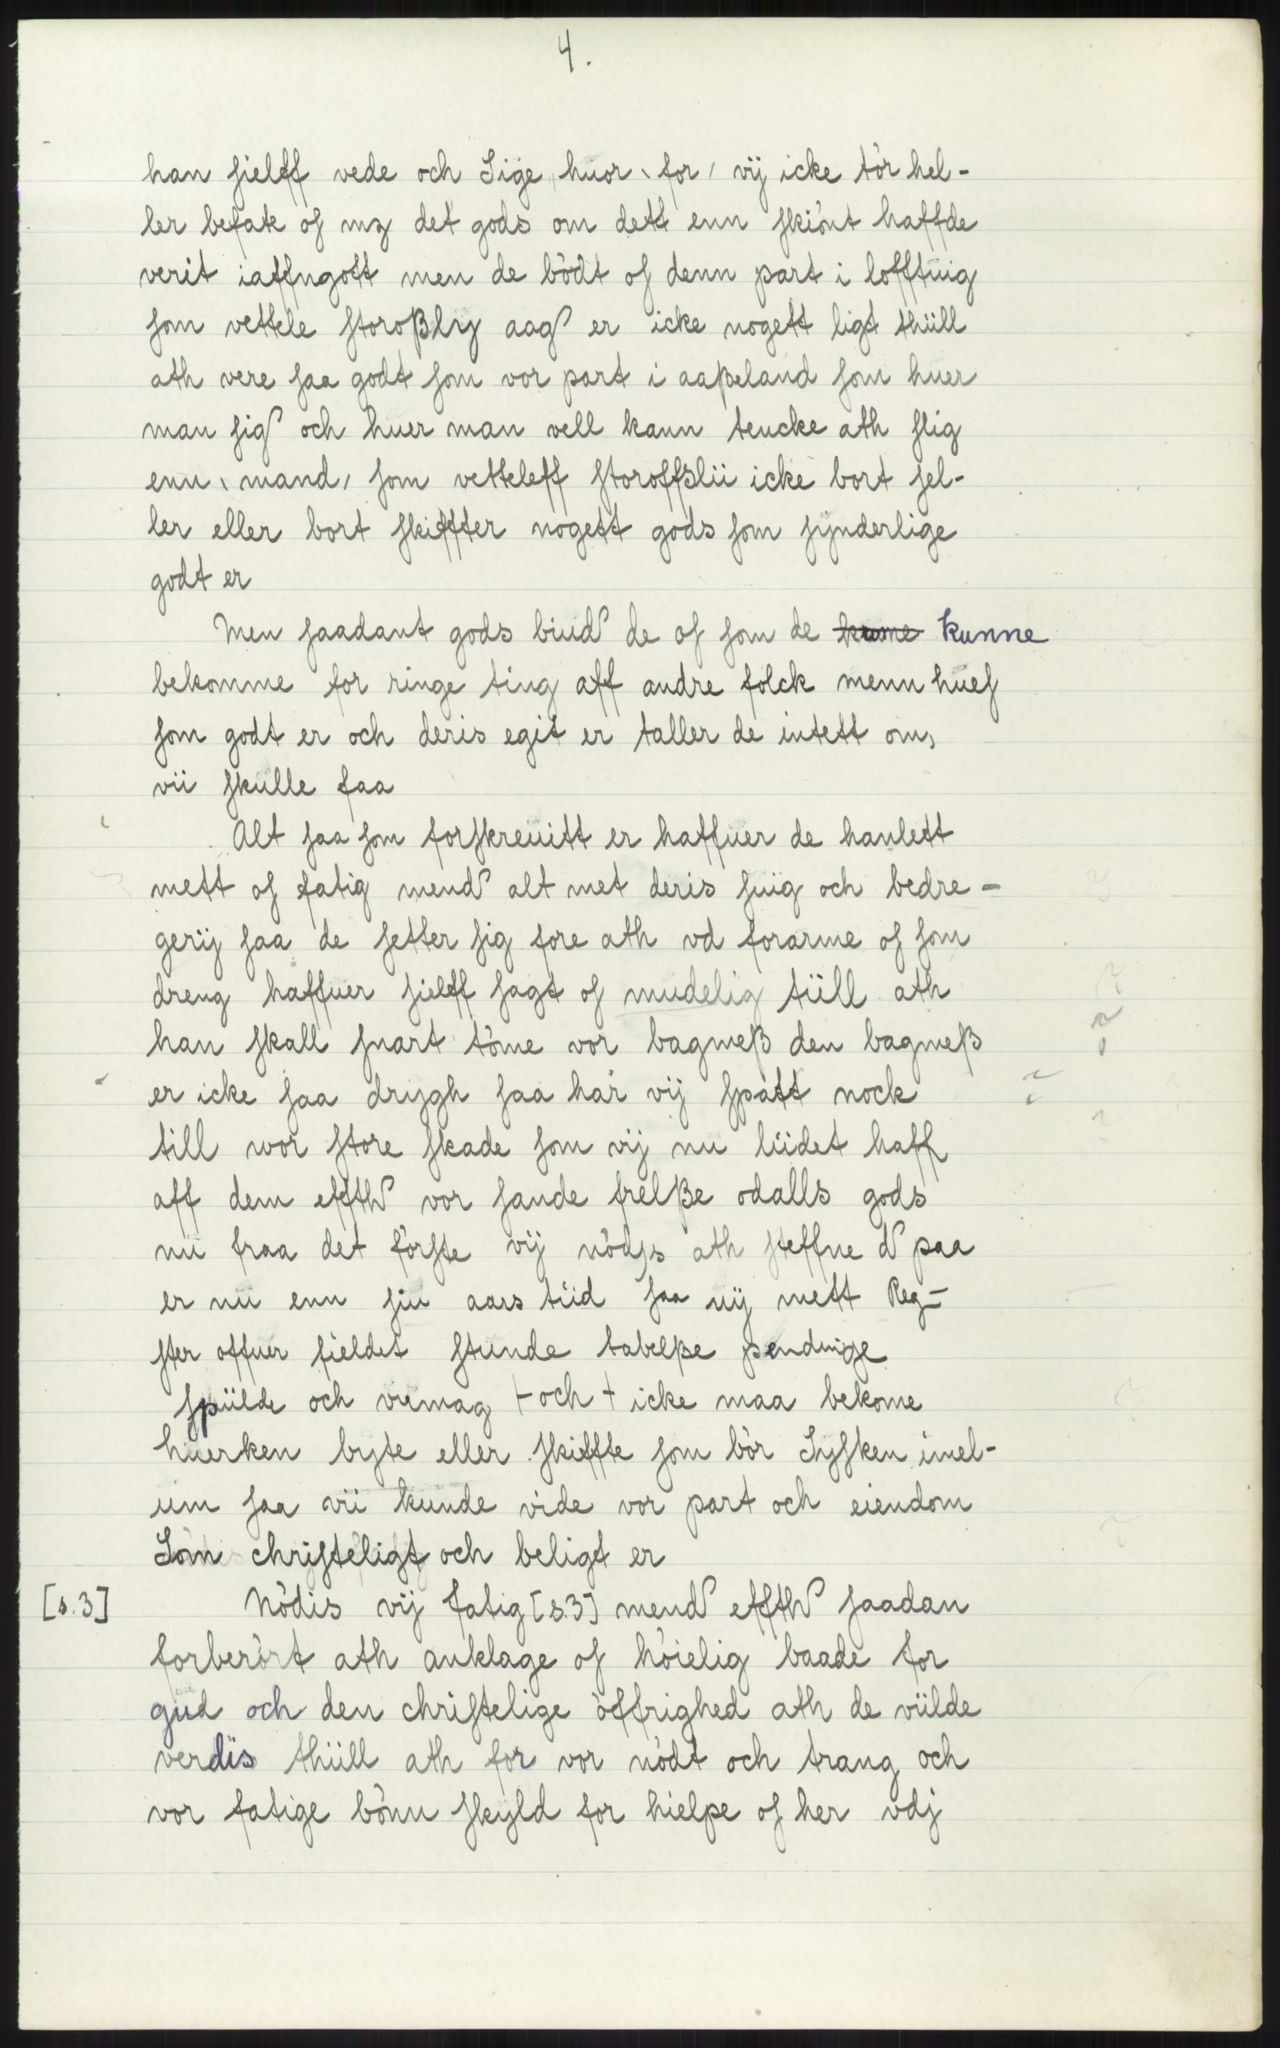 4.
han sielff vede och Sige huor, for, vij icke tør hel-
ler befate os mz det gods om dett enn skiønt haffde
verit iaffngott men de bødt os denn part i lofftuig
som vettele storoßlij aag er icke nogett ligt thüll
ath vere saa godt som vor part i aaßeland som huer
man sig och huer man vell kann tencke ath slig
enn, mand, som vetteleff storoffßlii icke bort sel-
ler eller bort skiffter nogett gods som synderlige
godt er
Men saadant gods biud de os som de kume kunne
bekomme for ringe ting aff andre folck menn hues
som godt er och deris egit er taller de intett om,
vii skulle faa
Alt saa som forskreuitt er haffuer de hanlett
mett os fatig mend alt met deris suig och bedre-
gerij saa de setter sig fore ath vd forarme os som
dreng haffuer sielff sagt os mudelig tüll ath
han skall snart tøme vor bagmeß den bagmeß
er icke saa drygh saa har vij spatt nock
till wor store skade som vij nu lüdet haff
aff dem effth vor sande frelße odalls gods
nu fraa det første vij nødis ath steffne d paa
er nu enn siu aars tüd saa uij mett Reg-
ster offuer fieldet stunde tabelße pendinge
spülde och vumag + och + icke maa bekome
huerken byte eller skiffte som bør Sysken imel-
um saa vii kunde vide vor part och eiendom
Som christeligt och beligt er
[s.3] Nødis vij fatig [s.3] mend effth saadan
forberørt ath anklage os høielig baade for
gud och den christelige øffrighed ath de vülde
verdis thüll ath for vor nødt och trang och
vor fatige bønn skyld for hielpe os her vdj